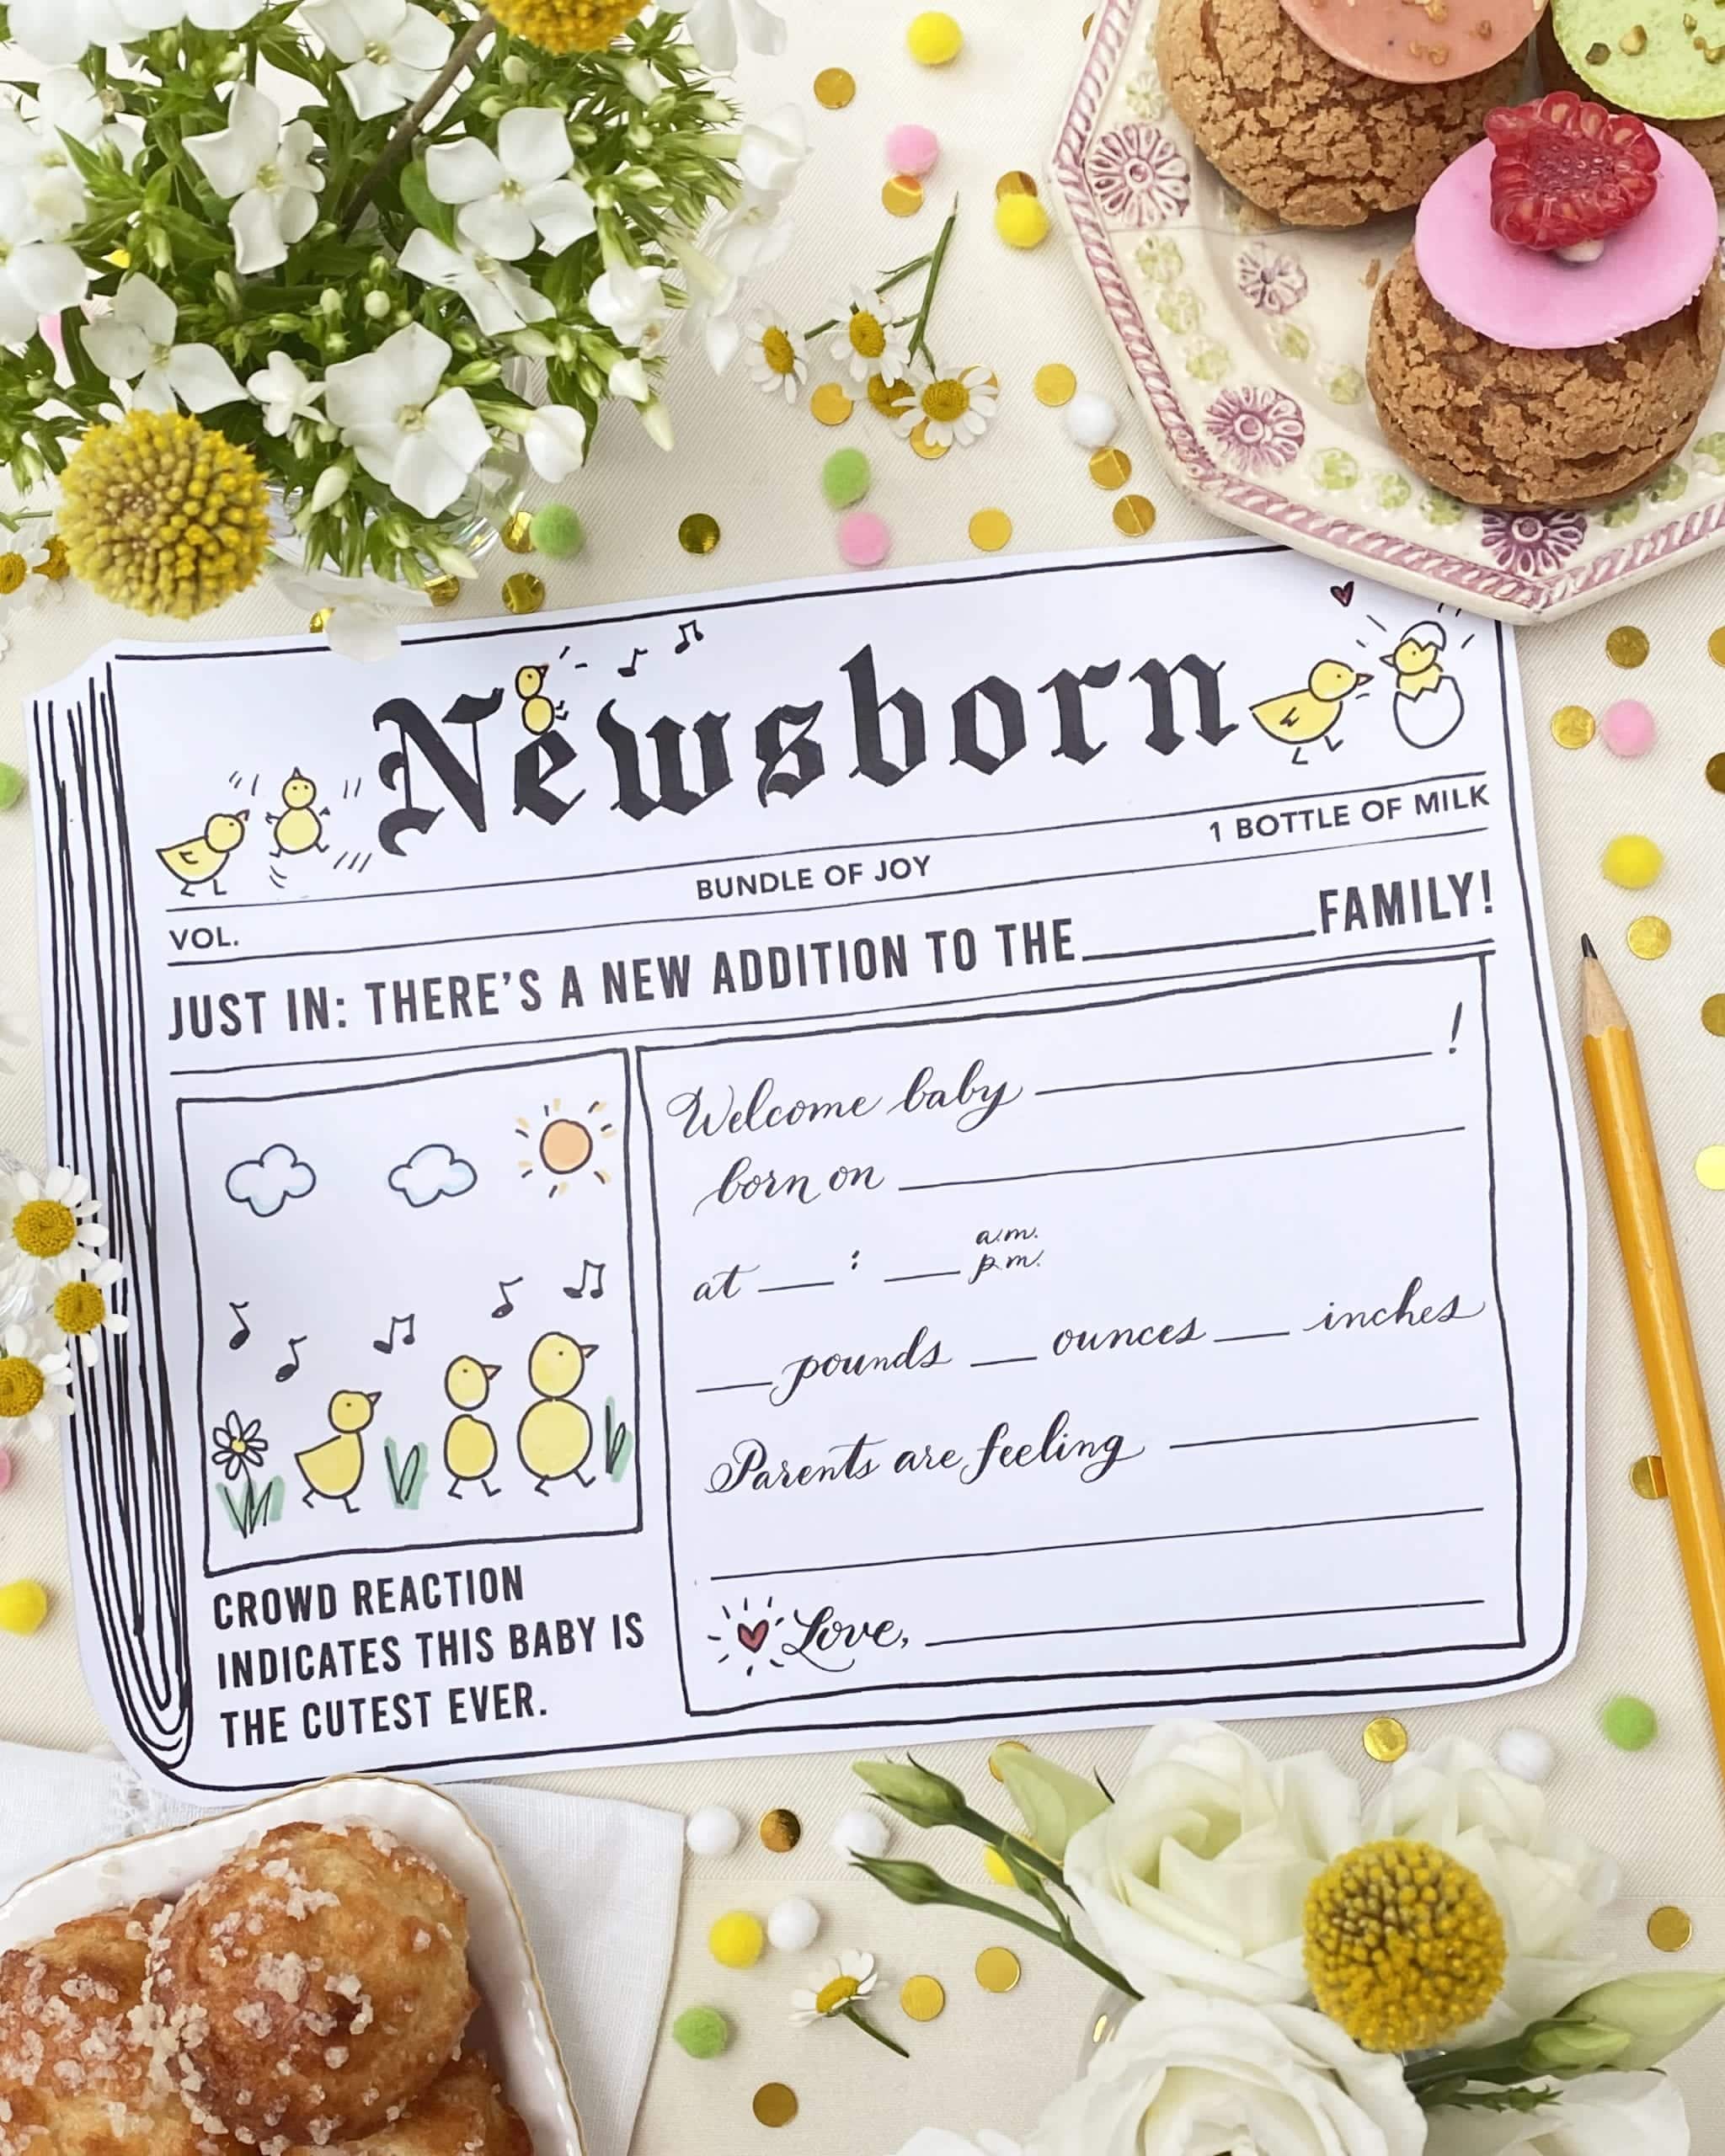 Newsborn
VOL. BUNDLE OF JOY 1 BOTTLE OF MILK
JUST IN: THERE'S A NEW ADDITION TO THE FAMILY!
Welcome baby !
born on
at : a.m.
p.m.
pounds ounces inches
Parents are feeling
Love,
CROWD REACTION
INDICATES THIS BABY IS
THE CUTEST EVER.